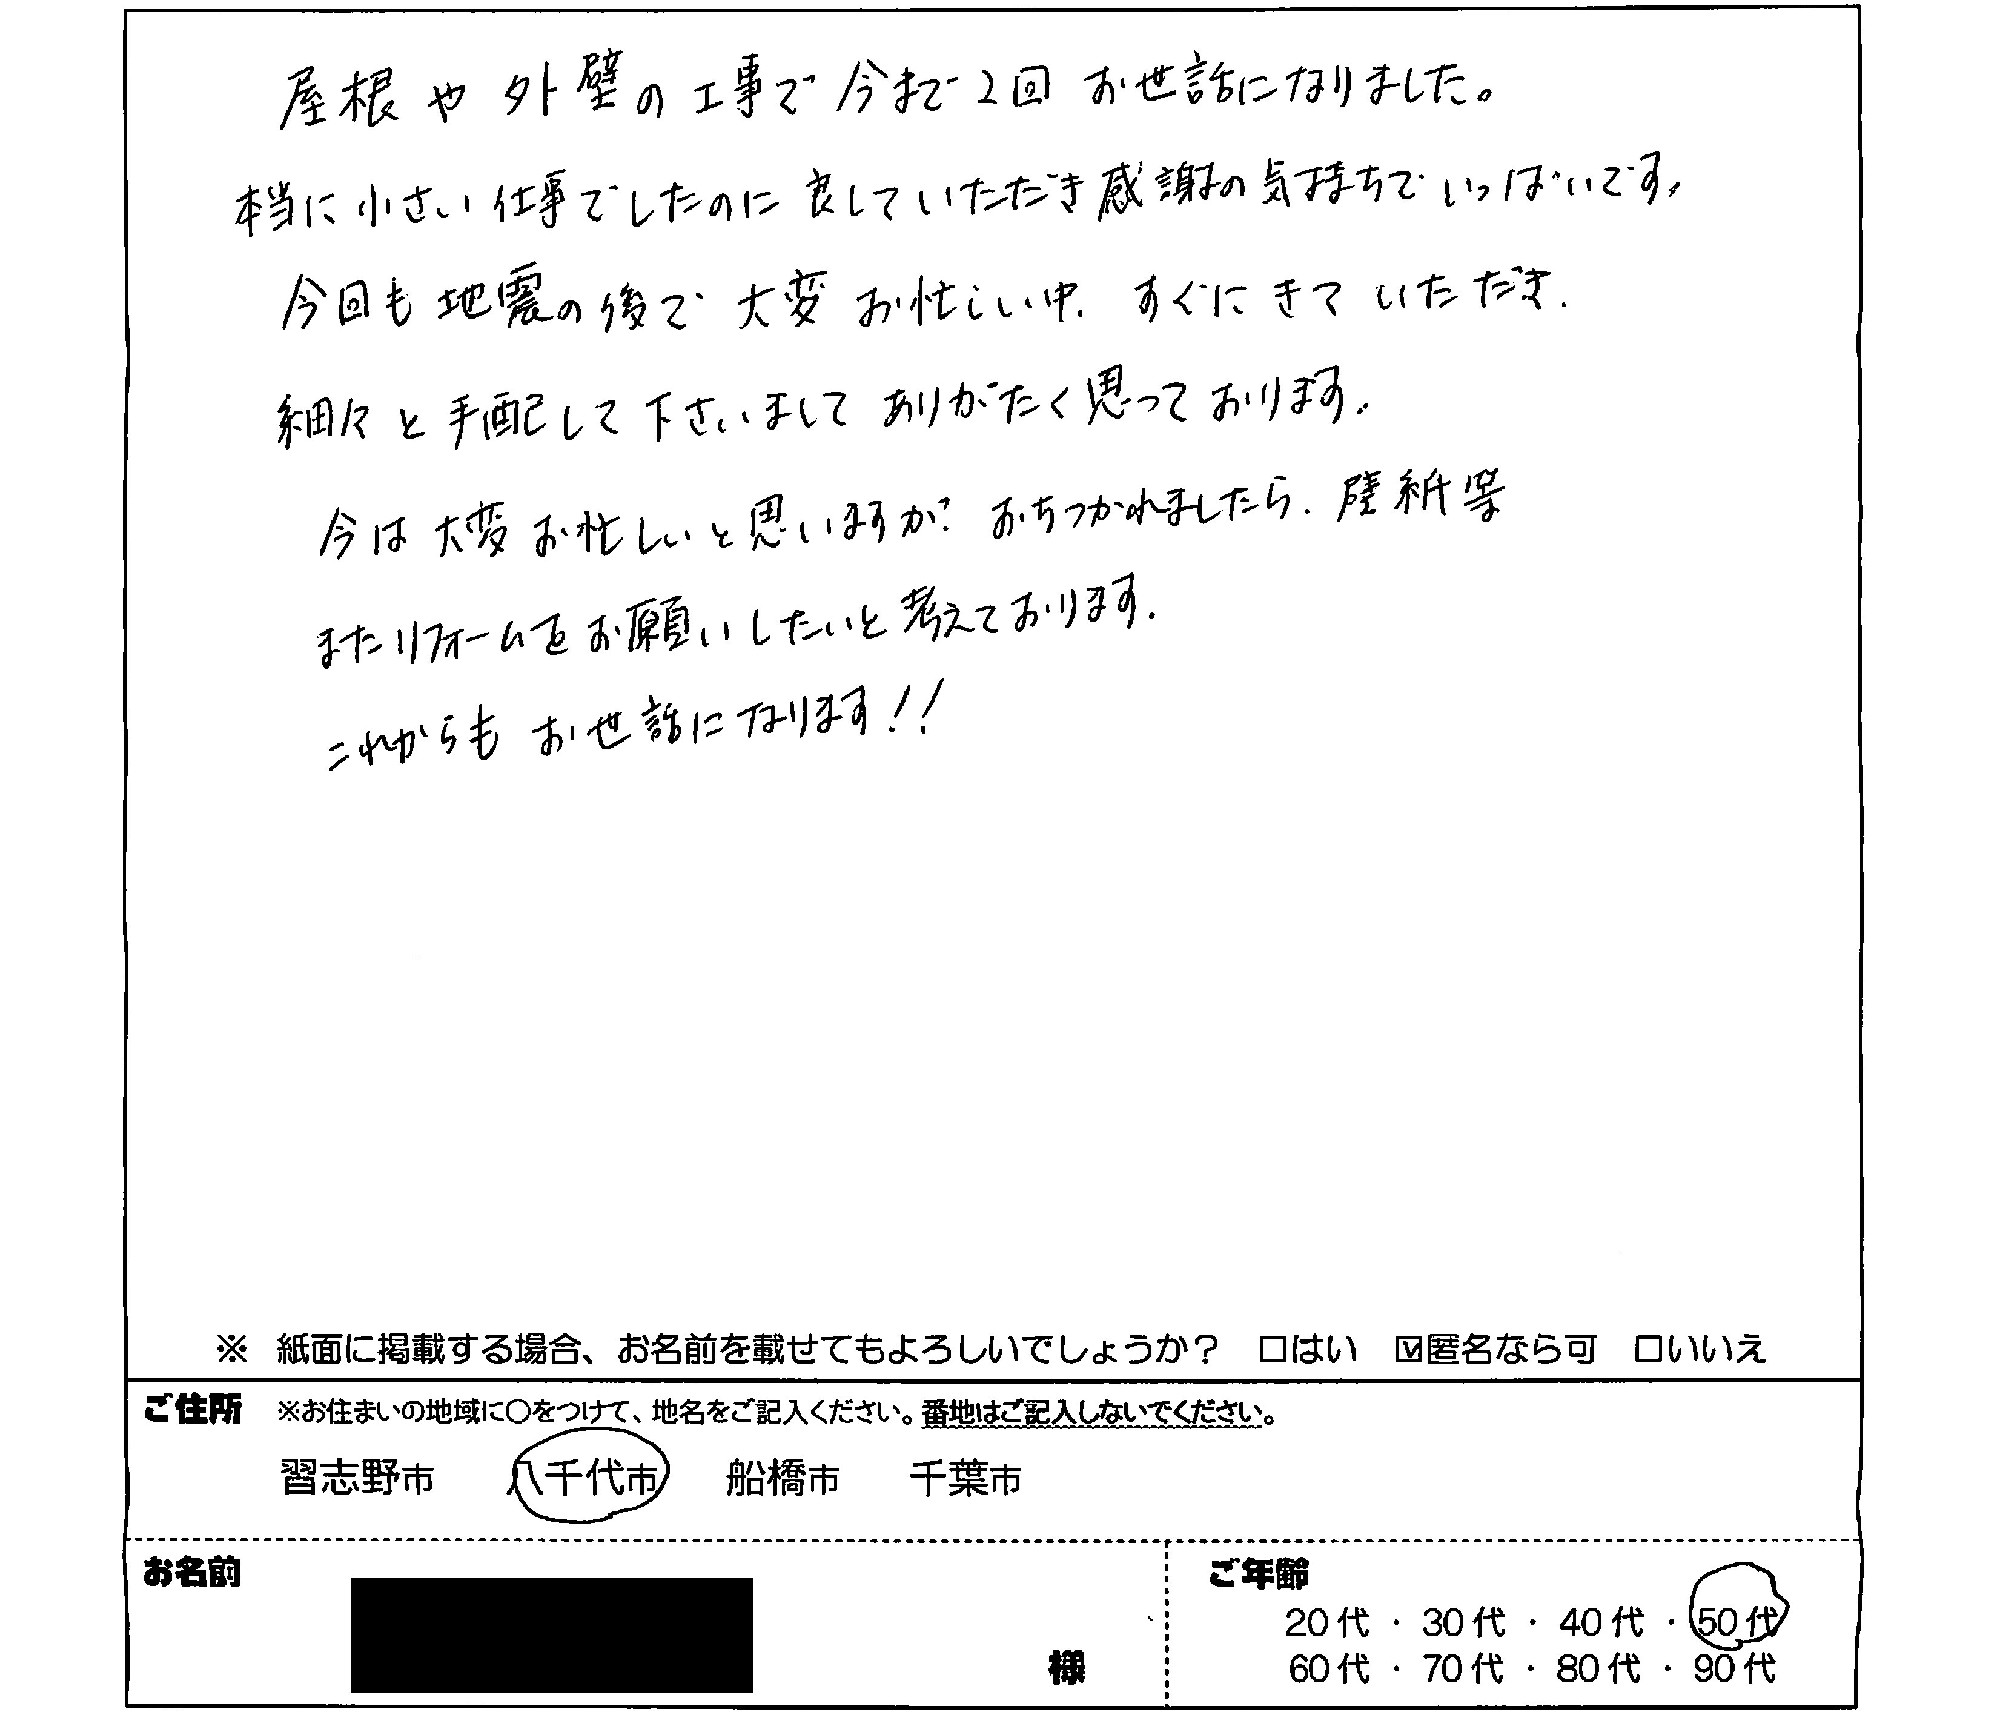 屋根や外壁の工事で今まで2回お世話になりました。
本当に小さい仕事でしたのに良していただき感謝の気持ちでいっぱいです。
今回も地震の後で大変お忙しい中、すぐにきていただき、
細々と手配して下さいましてありがたく思っております。
今は大変お忙しいと思いますが、おちつかれましたら、壁紙等
またリフォームをお願いしたいと考えております。
これからもお世話になります!!
※ 紙面に掲載する場合、お名前を載せてもよろしいでしょうか? □はい ☑匿名なら可 □いいえ
ご住所 ※お住まいの地域に○をつけて、地名をご記入ください。番地はご記入しないでください。
習志野市 八千代市 船橋市 千葉市
お名前 様
ご年齢
20代・30代・40代・50代
60代・70代・80代・90代